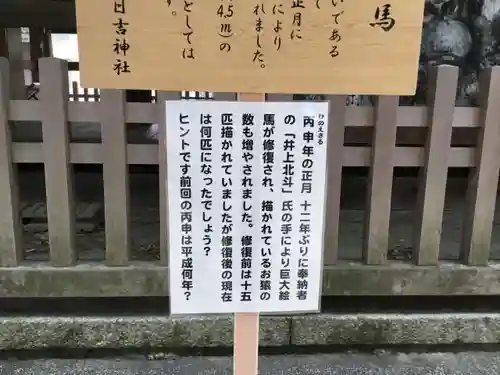 馬
いである
正月に
により
れました。
4.5m）の
としては
す。
日吉神社
ひのえさる
丙申年の正月　十二年ぶりに奉納者
の「井上北斗」氏の手により巨大絵
馬が修復され、描かれているお猿の
数も増やされました。修復前は十五
匹描かれていましたが修復後の現在
は何匹になったでしょう？
ヒントです前回の丙申は平成何年？